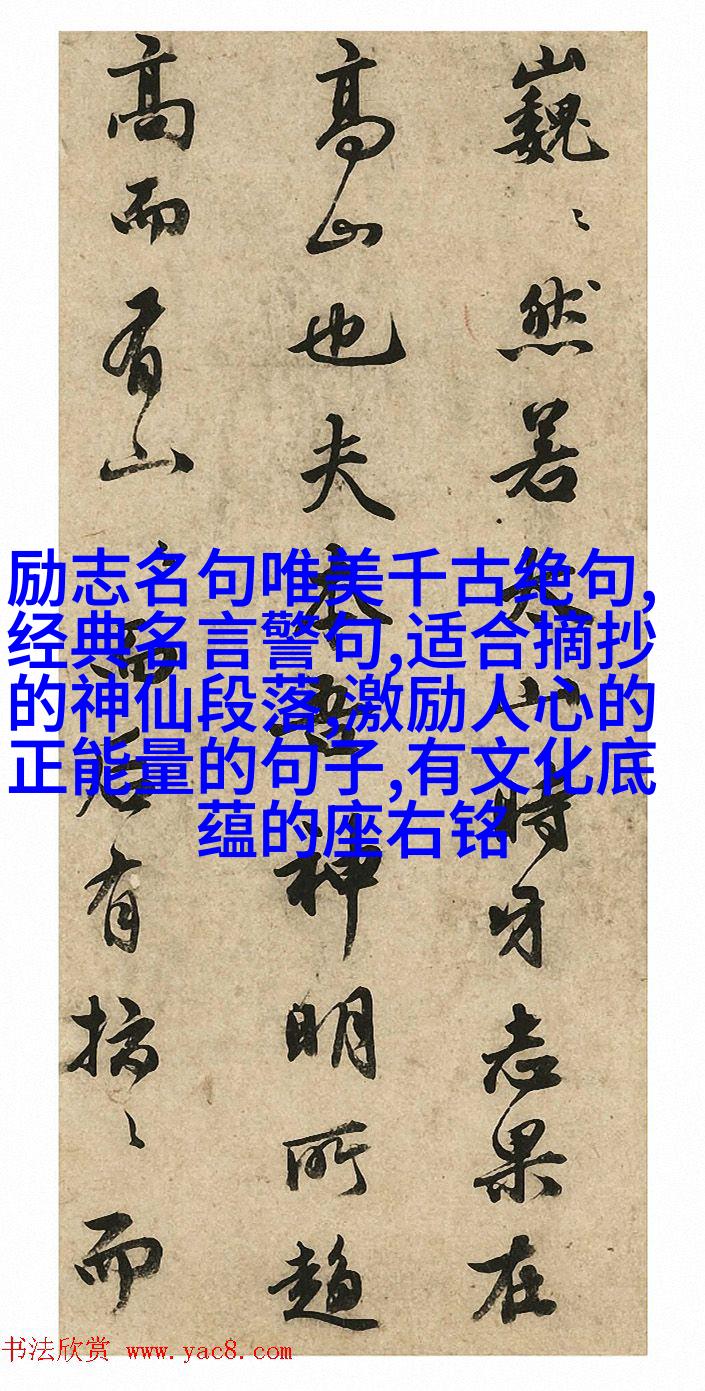 巍〻然若山時牙志果在
高山也夫神明所趨
高而有山而后有搞〻而
励志名句唯美千古绝句,
经典名言警句,适合摘抄
的神仙段落,激励人心的
正能量的句子,有文化底
蕴的座右铭
书法欣赏 www.yac8.com